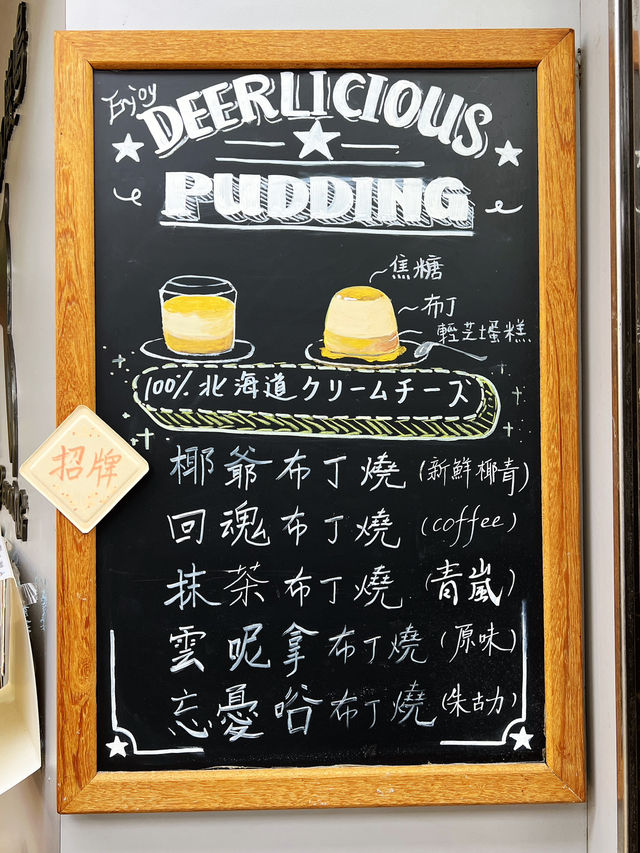 Enjoy
DEERLICIOUS
PUDDING
焦糖
布丁
輕芝士蛋糕
100% 北海道クリームチーズ
招牌
椰爺布丁燒 (新鮮椰青)
回魂布丁燒 (coffee)
抹茶布丁燒 (青嵐)
雲呢拿布丁燒 (原味)
忘憂哈布丁燒 (朱古力)